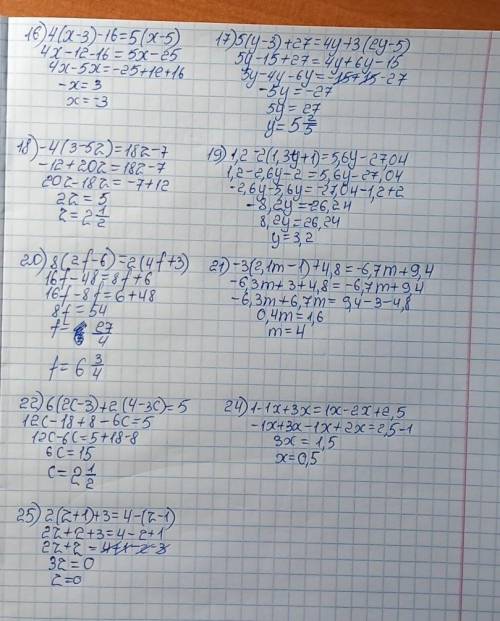 16) 4(x-3)-16=5(x-5)
4x-12-16=5x-25
4x-5x=-25+12+16
-x=3
x=-3
17) 5(y-3)+27=4y+3(2y-5)
5y-15+27=4y+6y-15
5y-4y-6y=-15+15-27
-5y=-27
5y=27
y=5 2/5
18) -4(3-5z)=18z-7
-12+20z=18z-7
20z-18z=-7+12
2z=5
z=2 1/2
19) 1,2-2(1,3y+1)=5,6y-27,04
1,2-2,6y-2=5,6y-27,04
-2,6y-5,6y=-27,04-1,2+2
-8,2y=-26,24
8,2y=26,24
y=3,2
20) 8(2f-6)=2(4f+3)
16f-48=8f+6
16f-8f=6+48
8f=54
f= 27/4
f=6 3/4
21) -3(2,1m-1)+4,8=-6,7m+9,4
-6,3m+3+4,8=-6,7m+9,4
-6,3m+6,7m=9,4-3-4,8
0,4m=1,6
m=4
22) 6(2c-3)+2(4-3c)=5
12c-18+8-6c=5
12c-6c=5+18-8
6c=15
c=2 1/2
24) 1-1x+3x=1x-2x+2,5
-1x+3x-1x+2x=2,5-1
3x=1,5
x=0,5
25) 2(z+1)+3=4-(z-1)
2z+2+3=4-z+1
2z+z=4+1-2-3
3z=0
z=0